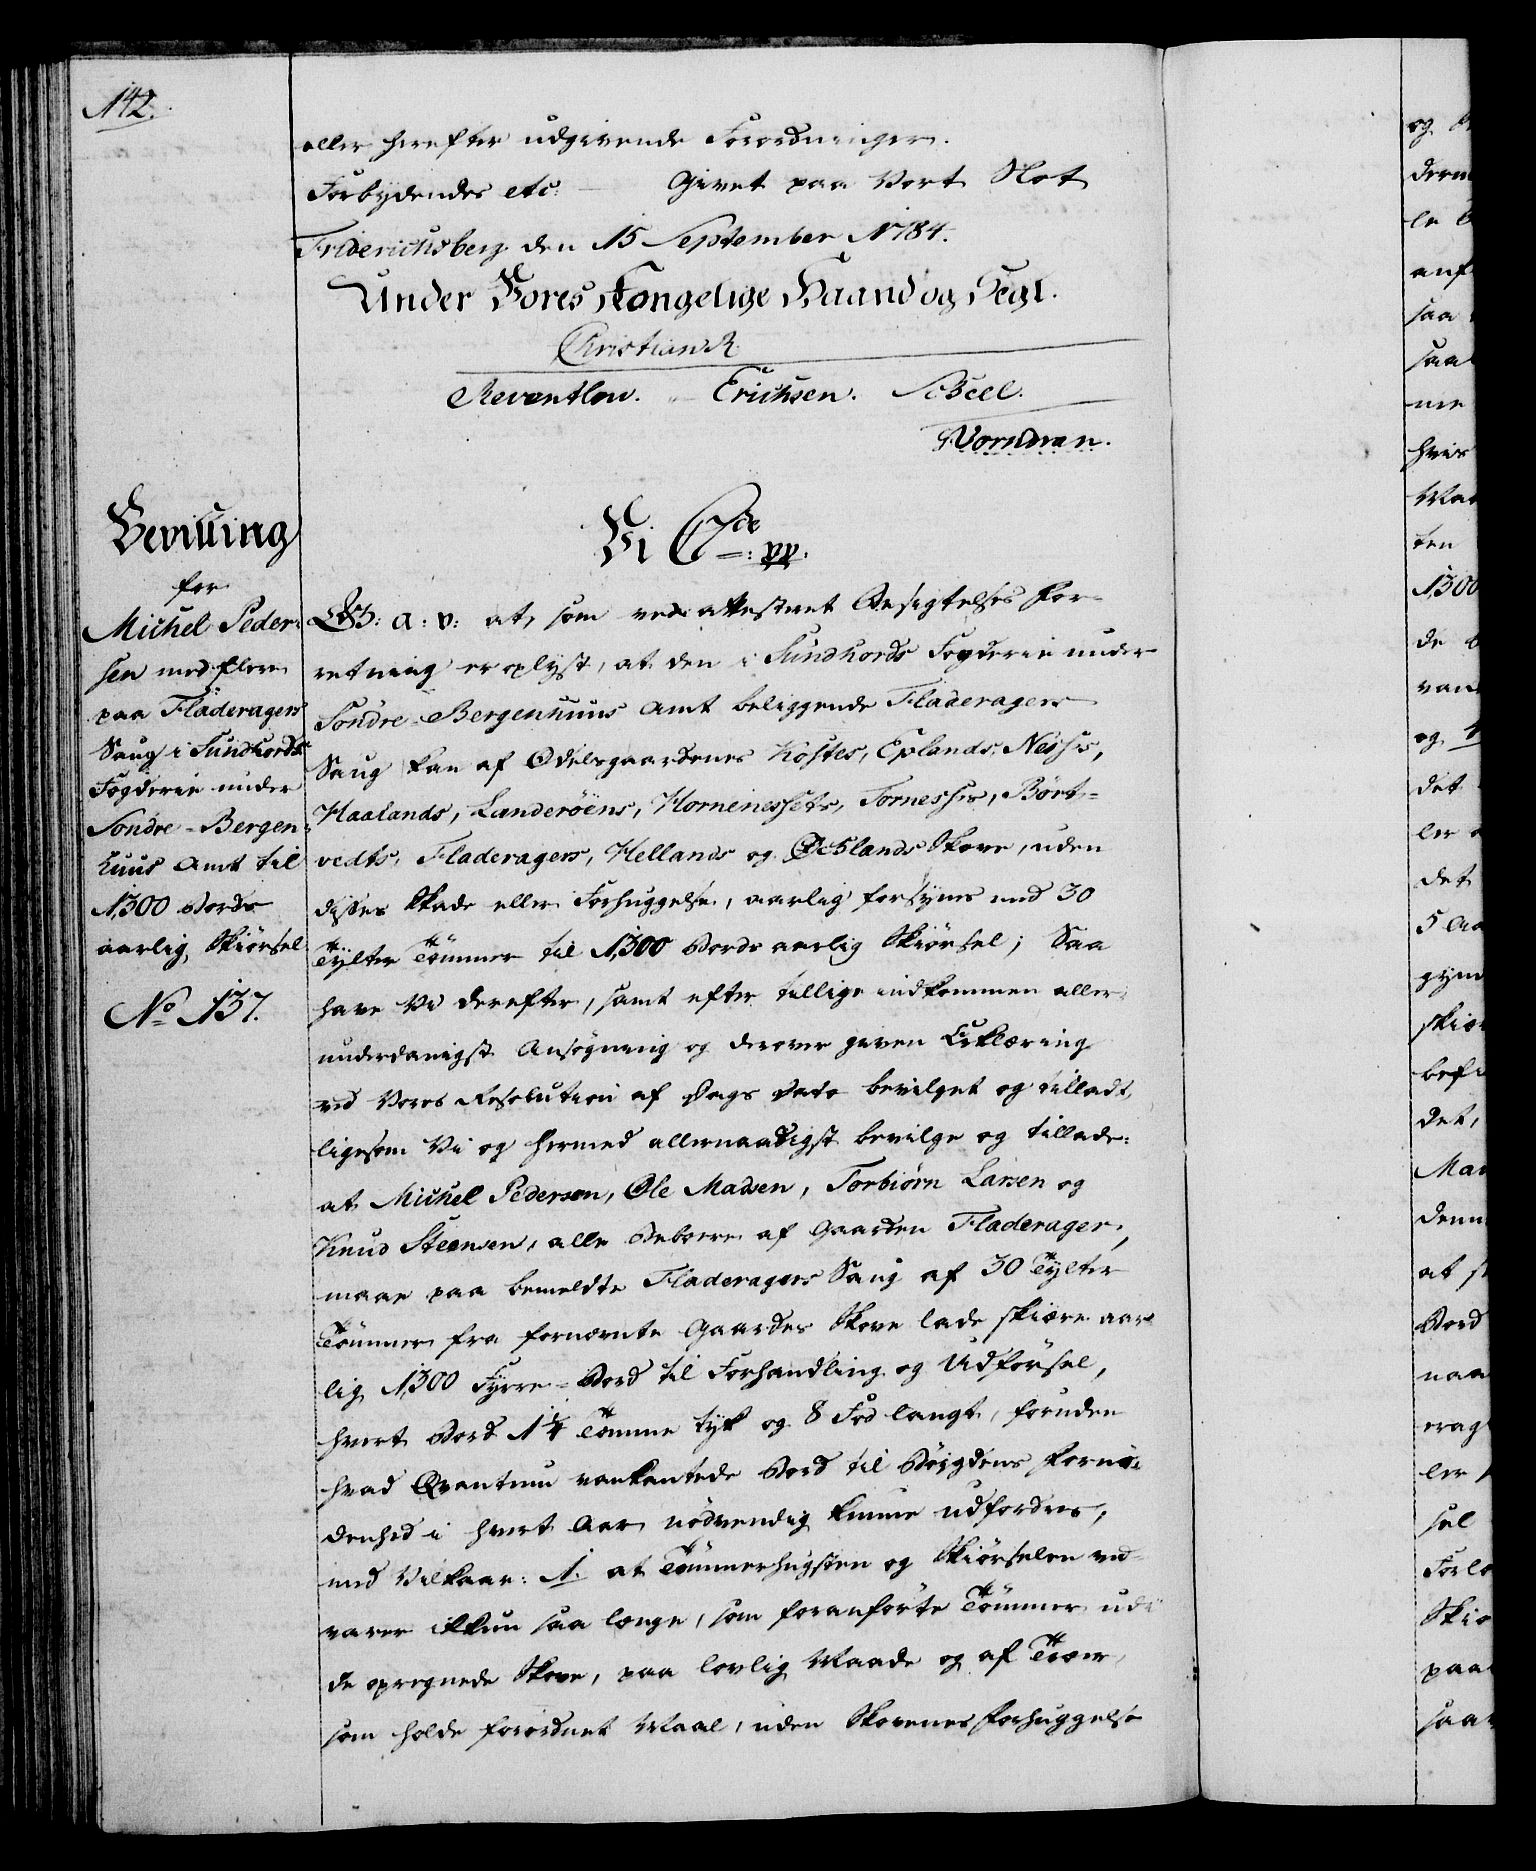 142.
eller herefter udgivende Forordninger.
Forbydendes etc: Givet paa Vort Slot
Friderichsberg den 15 September 1784.
Under Vores Kongelige Haand og Segl.
Christian R.
Reventlow. Erichsen. Scheel.
Vorndran.
Bevilling
for
Michel Peder-
sen med flere
paa Fladeragers
Saug i Sundhords
Fogderie under
Sondre-Bergen-
huus Amt til
1,300 Bords
aarlig Skiørsel
No 137.
Vi C 7de pp.
G: a: v: at, som ved attesteret Besigtelses For-
retning er oplyst, at den i Sundhords Fogderie under
Sondre-Bergenhuus Amt beliggende Fladeragers
Saug kan af Odelsgaardenes Kostes, Eplands, Neshes,
Haalands, Landerøens, Hornenessets, Tornesses, Børt-
vedts, Fladeragers, Hellands og Øchlands Skove, uden
disses Skade eller Forhuggelse, aarlig forsynes med 30
Tylter Tømmer til 1,300 Bords aarlig Skiørsel; Saa
have Vi derefter, samt efter tillige indkommen aller-
underdanigst Ansøgning og derover given Erklæring
ved Vores Resolution af Dags Dato bevilget og tilladt,
ligesom Vi og hermed allernaadigst bevilge og tillade:
at Michel Pedersen, Ole Madsen, Torbiørn Larsen og
Knud Steensen, alle Beboere af Gaarden Fladerager,
maae paa bemeldte Fladeragers Saug af 30 Tylter
Tømmer fra fornævnte Gaardes Skove lade skiære aar-
lig 1,300 Fyrre-Bord til Forhandling og Udførsel,
hvert Bord 1 1/4 Tomme tyk og 8 Fod langt, foruden
hvad Qvantum vankantede Bord til Bøigdens Fornø-
denhed i hvert Aar nødvendig kunne udfordres,
med Vilkaar: 1. at Tømmerhugsten og Skiørselen ved-
varer ikkun saa længe, som foranførte Tømmer udi
de opregnede Skove, paa lovlig Maade og af Træer,
som holde forordnet Maal, uden Skovenes Forhuggelse